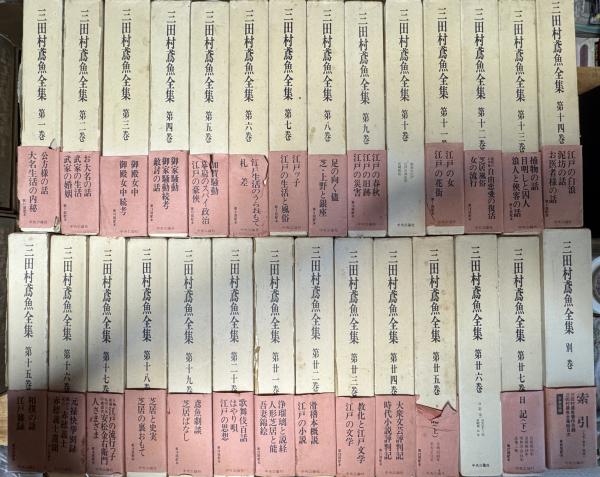 三田村鳶魚全集 第一巻
公方様の話
大名生活の内秘
三田村鳶魚全集 第二巻
お大名の話
武家の生活
武家の婚姻
三田村鳶魚全集 第三巻
御殿女中
御殿女中続考
三田村鳶魚全集 第四巻
御家騒動
御家騒動続考
敵討の話
三田村鳶魚全集 第五巻
加賀騒動
幕府のスパイ政治
江戸の豪侠
三田村鳶魚全集 第六巻
江戸生活のうらおもて
札差
三田村鳶魚全集 第七巻
江戸ッ子
江戸の生活と風俗
三田村鳶魚全集 第八巻
足の向く儘
芝と上野と銀座
三田村鳶魚全集 第九巻
江戸の春秋
江戸の旧跡
江戸の災害
三田村鳶魚全集 第十巻
中央公論社
三田村鳶魚全集 第十一巻
江戸の女
江戸の花街
三田村鳶魚全集 第十二巻
自由恋愛の復活
芝居風俗
女の流行
三田村鳶魚全集 第十三巻
捕物の話
目明しと囚人
浪人と侠客の話
三田村鳶魚全集 第十四巻
江戸の白浪
泥坊の話
お医者様の話
三田村鳶魚全集 第十五巻
相撲の話
江戸雑録
三田村鳶魚全集 第十六巻
元禄快挙別録
赤穂義士
三田村鳶魚全集 第十七巻
江戸の流行ッ子
安松金右衛門
人さまざま
三田村鳶魚全集 第十八巻
芝居と史実
芝居の裏おもて
三田村鳶魚全集 第十九巻
鳶魚劇談
芝居ばなし
三田村鳶魚全集 第二十巻
歌舞伎百話
はやり唄
江戸の思想
三田村鳶魚全集 第廿一巻
浄瑠璃と説経
人形芝居と能
吾妻錦絵
三田村鳶魚全集 第廿二巻
滑稽本概説
江戸の小説
三田村鳶魚全集 第廿三巻
教化と江戸文学
江戸の文学
三田村鳶魚全集 第廿四巻
大衆文芸評判記
時代小説評判記
三田村鳶魚全集 第廿五巻
三田村鳶魚全集 第廿六巻
中央公論社
三田村鳶魚全集 第廿七巻
日記(下)
三田村鳶魚全集 別巻
索引
中央公論社